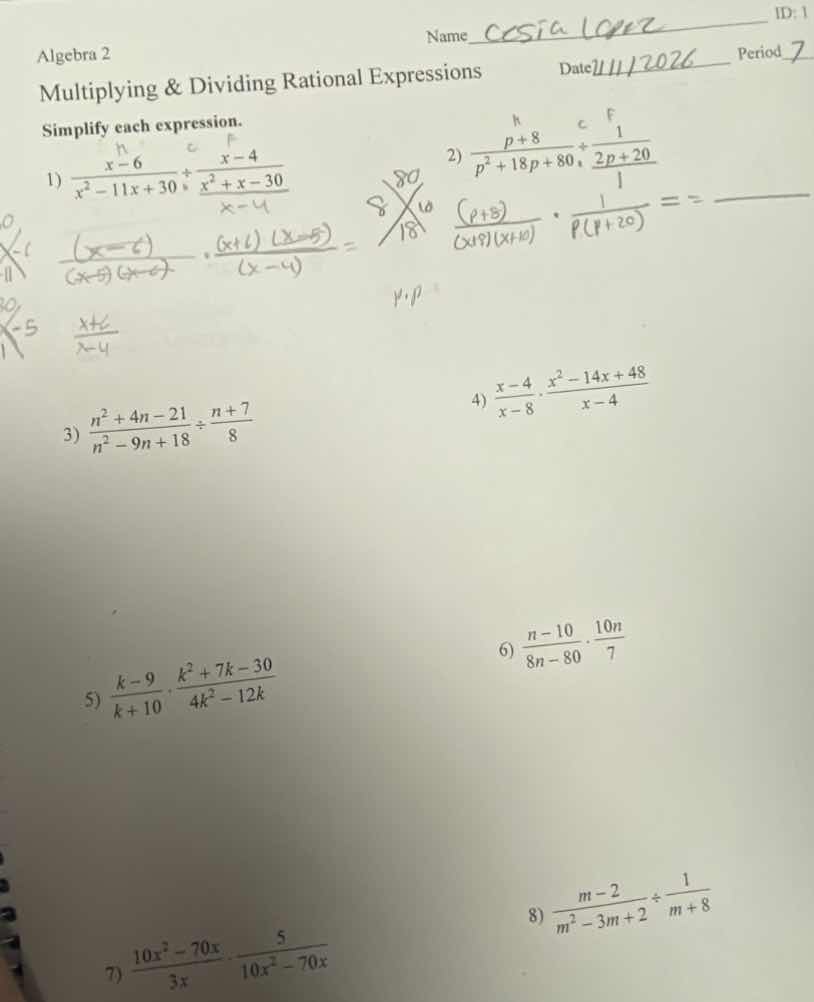 ID: 1
Name Cesia Lopez
Algebra 2
Multiplying & Dividing Rational Expressions
Date 2/11/2026 Period 7
Simplify each expression.
n c F
1) (x − 6)/(x² − 11x + 30) ÷ (x − 4)/(x² + x − 30)
x-4
(x-6)/((x-5)(x-6)) · ((x+6)(x-5))/(x-4) =
-6
-11
-5
1
(x+6)/(x-4)
n c F
2) (p + 8)/(p² + 18p + 80) ÷ 1/(2p + 20)
1
80
8 10
18
(p+8)/((x+8)(x+10)) · 1/(p(p+20)) = = —
p.p
3) (n² + 4n − 21)/(n² − 9n + 18) ÷ (n + 7)/8
4) (x − 4)/(x − 8) · (x² − 14x + 48)/(x − 4)
5) (k − 9)/(k + 10) · (k² + 7k − 30)/(4k² − 12k)
6) (n − 10)/(8n − 80) · 10n/7
7) (10x² − 70x)/3x · 5/(10x² − 70x)
8) (m − 2)/(m² − 3m + 2) ÷ 1/(m + 8)